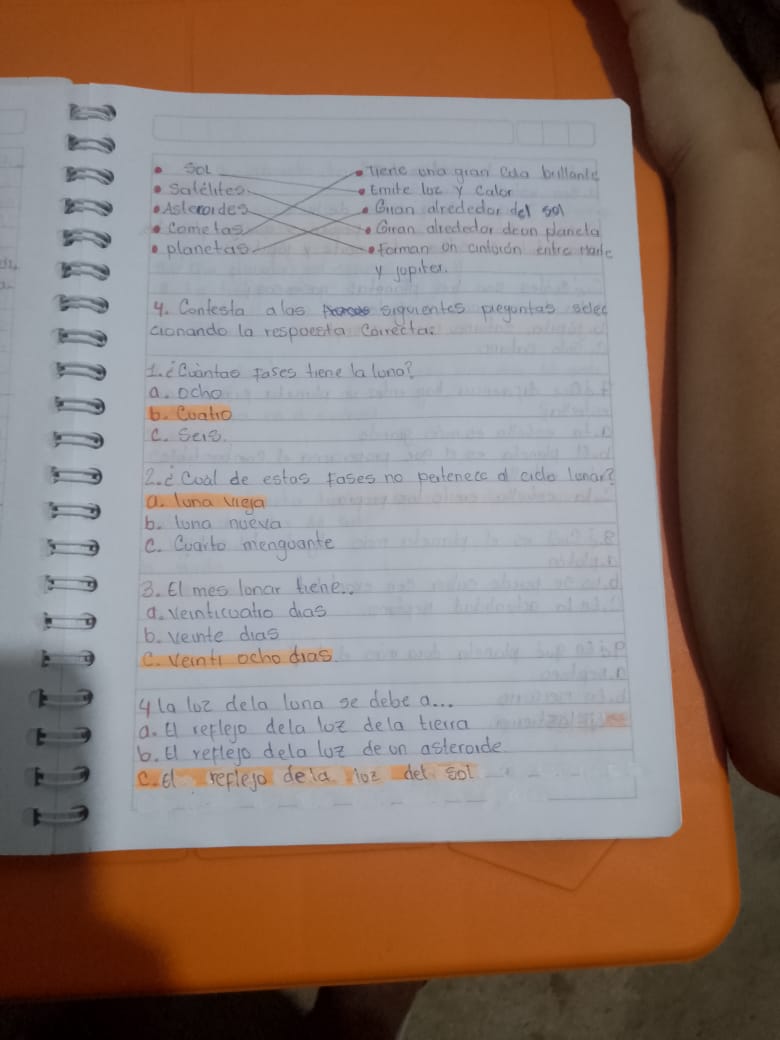 • Sol
• Satélites
• Asteroides
• Cometas
• planetas
• Tiene una gran Cola brillante
• Emite luz y Calor
• Giran alrededor del sol
• Giran alrededor deun planeta
• Forman un cinturón entre Marte
y Jupiter.
4. Contesta alas siguientes preguntas selec
cionando la respuesta Correcta:
1. ¿Cuántas fases tiene la luna?
a. ocho
b. Cuatro
C. Seis.
2. ¿Cual de estas fases no pertenece al ciclo lunar?
a. luna vieja
b. luna nueva
C. Cuarto menguante
3. El mes lunar tiene..
a. veinticuatro dias
b. veinte dias
C. Veinti ocho dias
4 la luz dela luna se debe a...
a. El reflejo dela luz dela tierra
b. El reflejo dela luz de un asteroide
C. El reflejo dela luz del sol